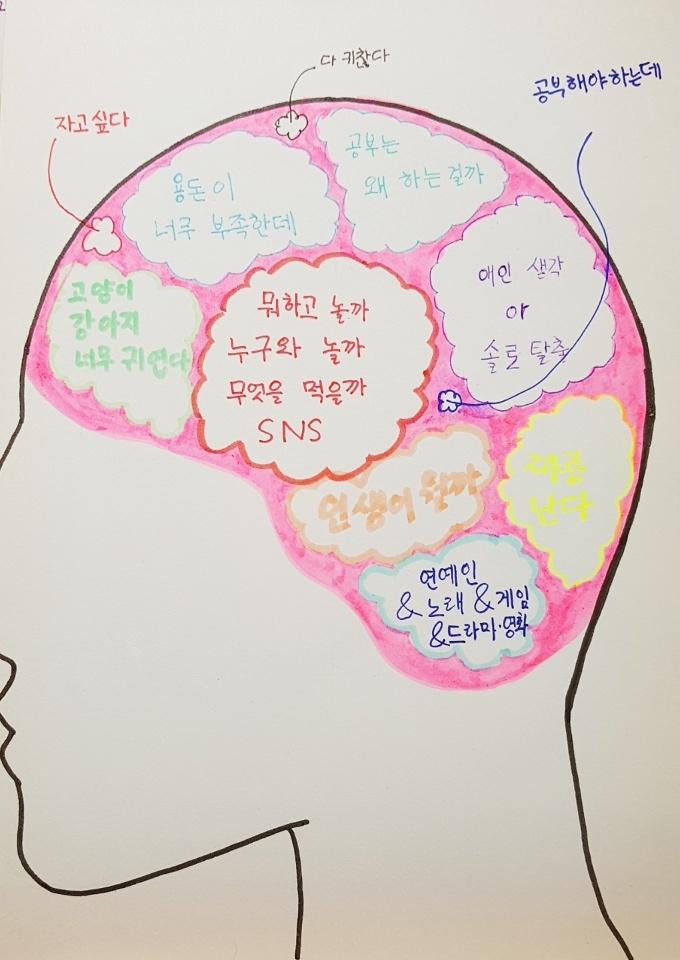 다 귀찮다
공부해야하는데
자고싶다
용돈이
너무 부족한데
공부는
왜 하는걸까
애인 생각
or
솔로 탈출
고양이
강아지
너무 귀엽다
뭐하고 놀까
누구와 놀까
무엇을 먹을까
SNS
인생이 뭘까
짜증
난다
연예인
& 노래 & 게임
& 드라마·영화